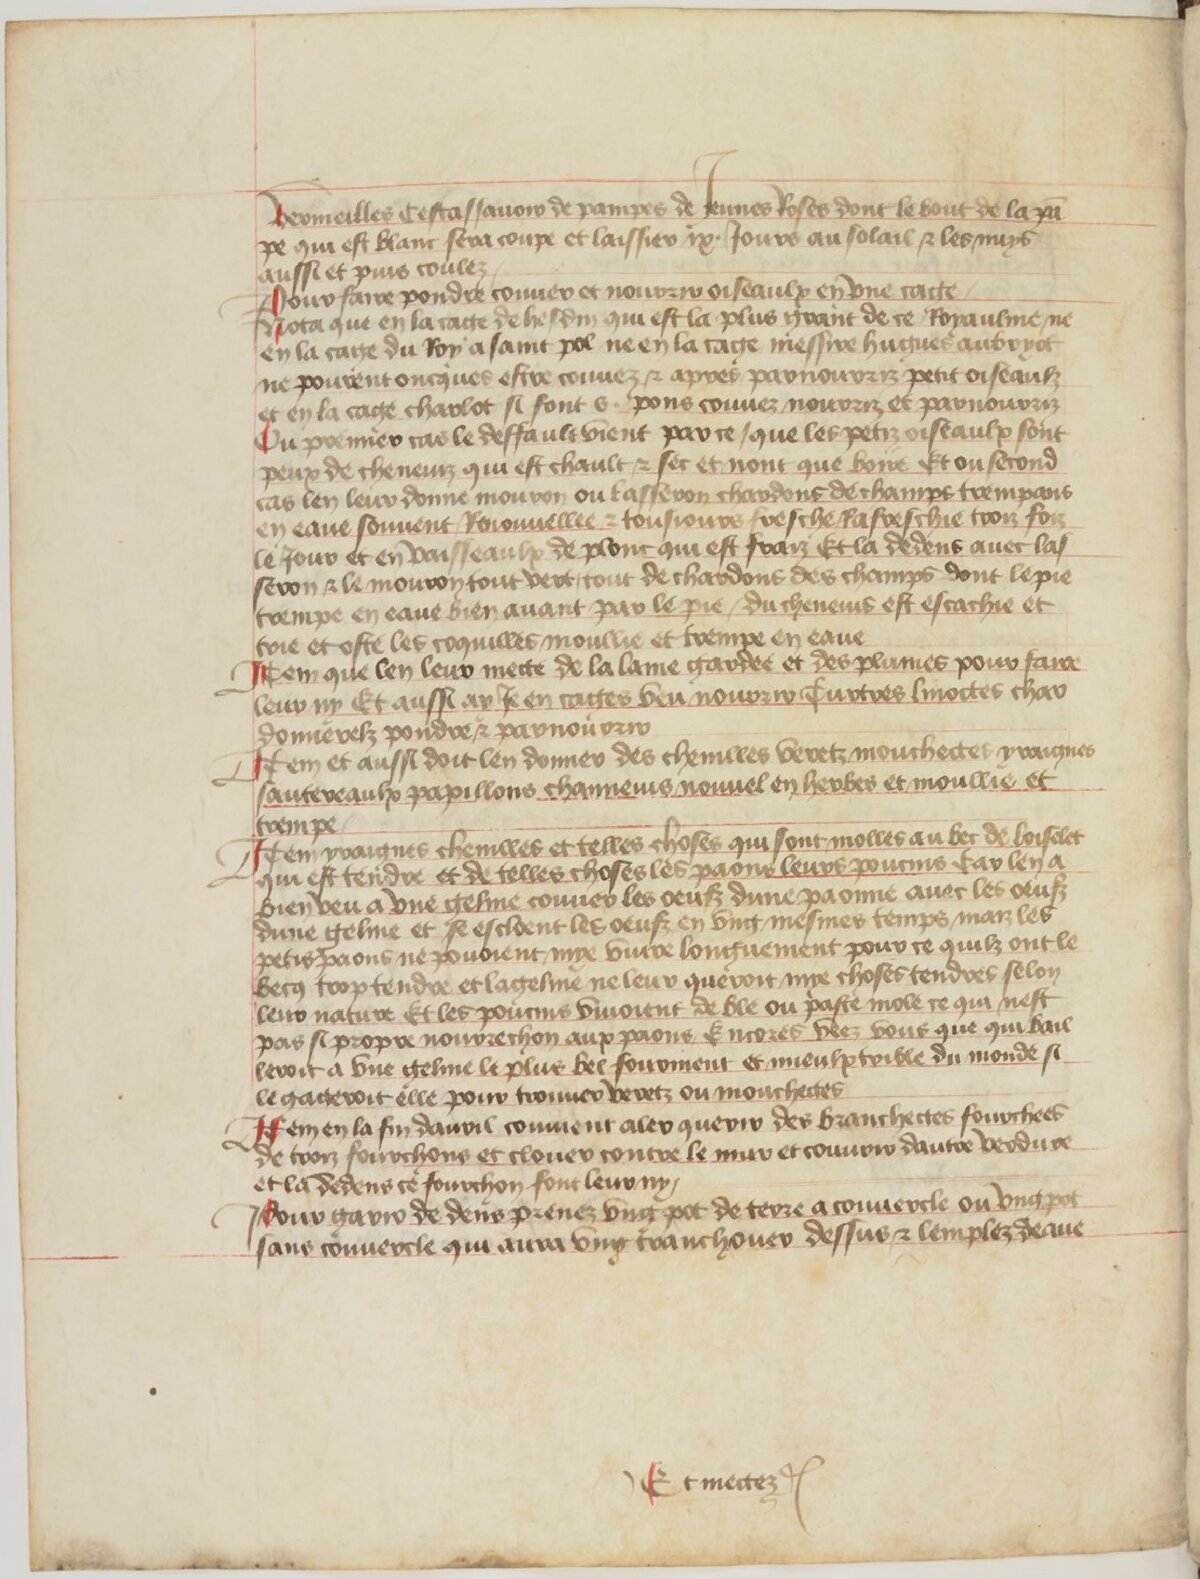 Vermeilles Cestassavoir de pampes de Jeunes Roses dont le bout de la pā
pe qui est blanc sera coupe et laissier ix. Jours au soleil & les nuys
aussi et puis coulez
Pour faire pondre couuer et nourrir oiseaulx en vne cage
Nota que en la cage de hesdin qui est la plus grant de ce Royaulme ne
en la cage du Roy a saint pol ne en la cage messire hugues aubryot
ne pourent oncques estre couuez & apres parnourriz petit oiseaulz
et en la cage charlot si font s. pons couuez nourriz et parnourriz
Ou premier cas le deffault vient par ce / que les petiz oiseaulx sont
peux de cheneuiz qui est chault & sec et nont que boire Et ou second
cas len leur donne mouron ou lasseron chardons de champs trempans
en eaue souuent Renouuellee & tousiours fresche Rafreschie troiz foiz
le Jour et en vaisseaulx de plonc qui est fraiz Et la dedens auec las
seron & le mouron tout vert / tout de chardons des champs dont le pie
trempe en eaue bien auant par le pie / du cheneuis est escachie et
trie et oste les coquilles moullie et trempe en eaue
Item que len leur mecte de la laine gardee et des plumes pour faire
leur ny Et aussi ay Je en cages veu nourrir Turtres linottes char
donnerelz pondre & parnourrir
Item et aussi doit len donner des chenilles veretz mouchettes yraignes
sautereaulx papillons channeuis nouuel en herbes et moullie et
trempe
Item yraignes chenilles et telles choses qui sont molles au bec de loiselet
qui est tendre et de telles choses les paons leurs poucins Car len a
bien veu a vne geline couuer les oeufz dune paonne auec les oeufz
dune geline et se escloent les oeufz en vng mesmes temps maiz les
petis paons ne pouoient mye viure longuement pour ce quilz ont le
becq trop tendre et la geline ne leur queroit mye choses tendres selon
leur nature Et les poucins viuoient de ble ou paste mole ce qui nest
pas si propre nourrechon aux paons Encores veez vous que qui bail
leroit a vne geline le plus bel fourment et mieulx trible du monde si
le gateroit elle pour trouuer veretz ou mouchetes
Item en la fin dauril conuient aler querir des branchettes fourchees
de troiz fourchons et clouer contre le mur et couurir dautre verdure
et la dedens ce fourchon font leur ny
Pour garir de dens prenez vng pot de terre a couuercle ou vng pot
sans couuercle qui aura vng tranchouer dessus & lemplez deaue
Et mettez